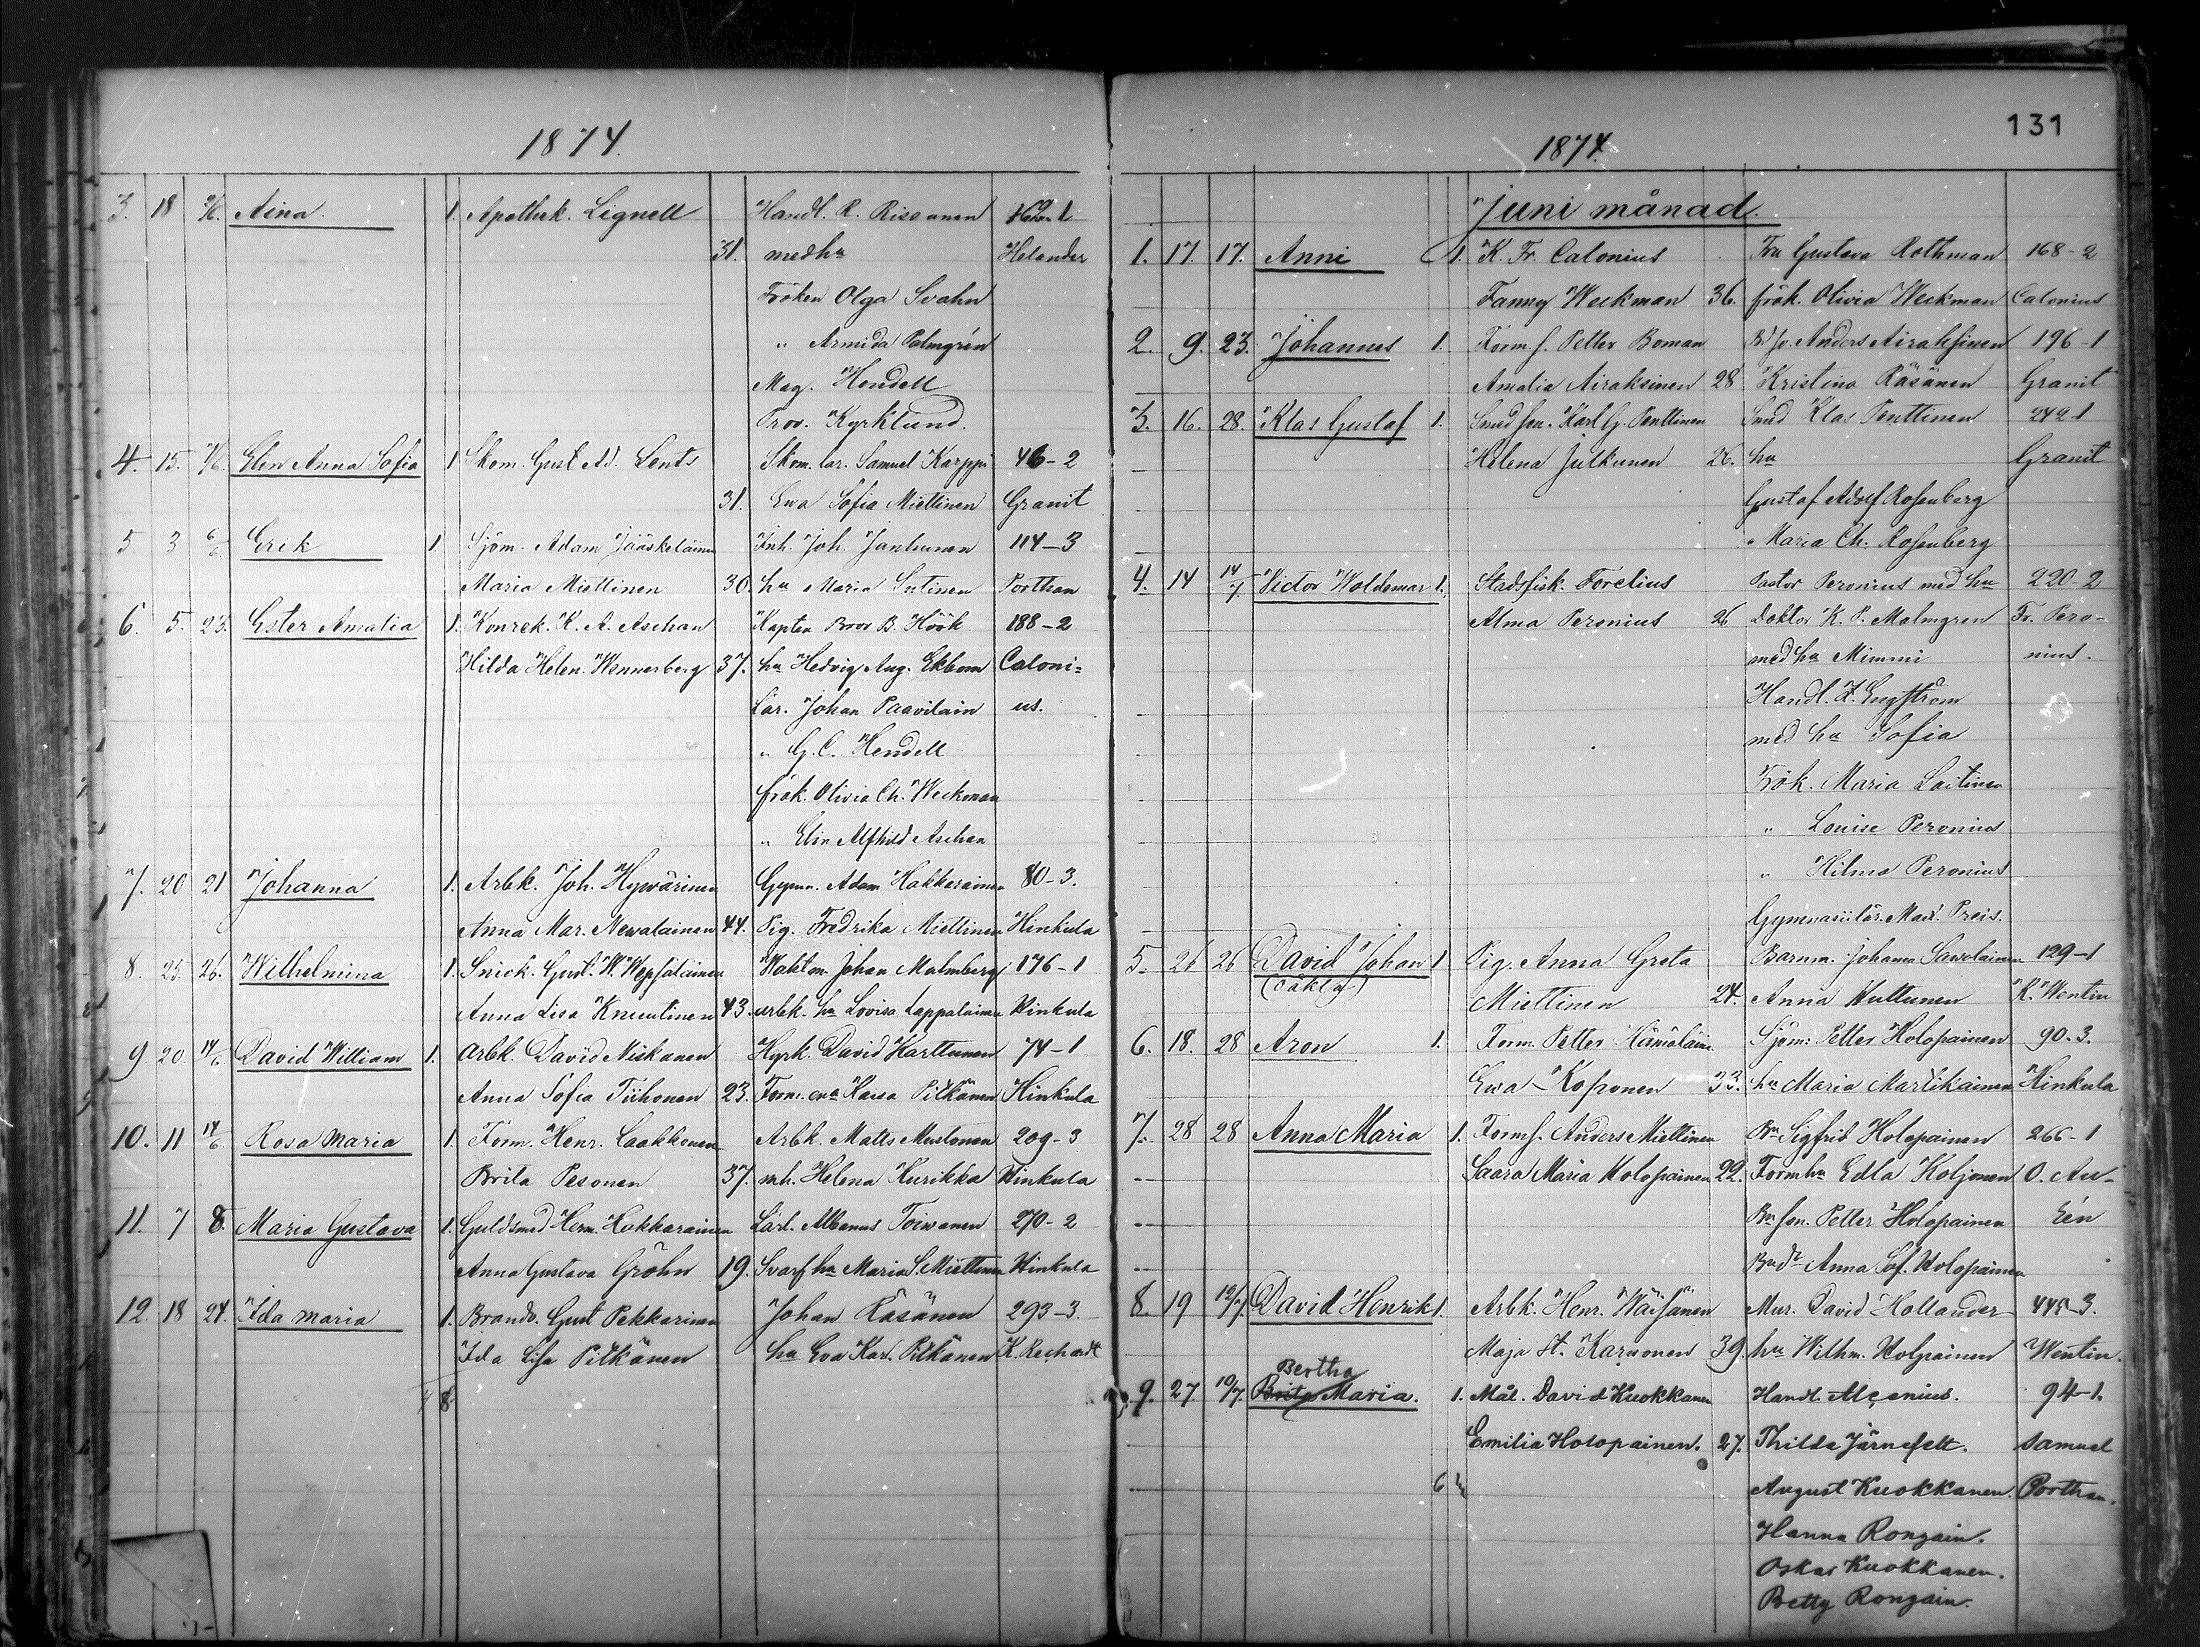 1874.
3. 18 Aina. 1. Apothek. Lignell Handl. R. Rissanen
31. med hu Helander
Fröken Olga Svahn
" Armida Palmgrén
Mag. Hendell
Prov. Kyrklund.
4. 15. Elin Anna Sofia 1 Skom. Gust. Ad. Lents Skom. lär. Samuel Karppi 46-2
31. Ewa Sofia Miettinen Granit
5 3 6/6 Erik 1 Sjöm. Adam Jääskeläinen Inh. Joh. Janhunen 114-3
Maria Miettinen 30. hu Maria Sutinen Porthan
6. 5. 23. Ester Amalia 1. Konrek. K. A. Aschan Kapten Broor B. Höök 188-2
Hilda Helen. Wennerberg 37. hu Hedvig Aug. Ekbom Caloni-
Lär. Johan Paavilain us.
" G. C. Hendell
frök. Olivia Ch. Weckman
" Elin Alfhild Aschan
7. 20 21 Johanna 1. Arbk. Joh. Hyvärinen Gymn. Adam Hakkarainen 80-3.
Anna Mar. Newalainen 44. Pig. Fredrika Miettinen Hinkula
8. 25 26. Wilhelmina 1. Snick. Gust. W. Wepsäläinen Waktm. Johan Malmberg 176-1
Anna Lisa Knuutinen 43. arbk. hu Lovisa Lappalainen Hinkula
9 20. 14/6 David William 1. Arbk. David Niskanen Hyrk. David Karttunen 74-1
Anna Sofia Tiihonen 23. Form. Kaisa Pitkänen Hinkula
10. 11 14/6 Rosa Maria 1. Form. Henr. Laakkonen Arbk. Matts Mustonen 209-3
Brita Pesonen 37. inh. Helena Kurikka Hinkula
11. 7 8. Maria Gustava 1. Guldsmed Herm. Hakkarainen Lärl. Albanus Toiwanen 270-2
Anna Gustava Gröhn 19. Svarf hu Maria S. Miettinen Hinkula
12. 18 24. Ida Maria 1. Brandv. Gust Pekkarinen Johan Räsänen 293-3.
Ida Lisa Pitkänen hu Eva Kar. Pitkänen K. Rechardt
8
131
1874.
Juni månad.
1. 17. 17. Anni 1. K. Fr. Calonius Fru Gustava Rothman 168-2
Fanny Weckman 36. frök. Olivia Weckman Calonius
2. 9. 23. Johannes 1. Form. f. Petter Boman Anders Airaksinen 196-1
Amalia Airaksinen 28 Kristina Räsänen Granit
3. 16. 28. Klas Gustaf 1. Smed son. Karl G. Penttinen Smed Klas Penttinen 242-1
Helena Julkunen 26. hu Granit
Gustaf Adolf Rosenberg
" Maria Ch. Rosenberg
4. 14 14/7 Victor Woldemar 1. Stadsfisk. Forelius Pastor Peronius med hu 220-2
Alma Peronius 26 Doktor K. P. Malmgren Fr. Pero-
med hu Mimmi nius.
Handl. Z. Engström
med hu Sofia
Frök. Maria Laitinen
" Louise Peronius
" Hilma Peronius
Gymnasiilär. Max. Preis.
5. 26 26 David Johan 1 Pig. Anna Greta Barnm. Johanna Savolainen 129-1
(oäkta) Miettinen 24. Anna Huttunen K. Wentin
6. 18. 28 Aron 1. Form. Petter Hämäläin Sjöm. Petter Holopainen 90-3.
Ewa Koponen 33. hu Maria Martikainen Hinkula
7. 28 28 Anna Maria 1. Form f. Anders Miettinen Bn Sigfrid Holopainen 266-1
Saara Maria Holopainen 22. Form hu Edla Koljonen O. Au-
Bn son. Petter Holopainen lén
Bn dr Anna Sof. Holopainen
8. 19 12/7 David Henrik 1. Arbk. Henr. Wäisänen Mur. David Hollander 445-3.
Maja St. Karvonen 39. hu Wilhm. Holpainen Wentin.
Bertha
9. 27 12/7. Brita Maria. 1. Mål. David Kuokkanen Handl. Alcenius. 94-1.
Emilia Holopainen. 27. Thilda Järnefelt. Samuel
6 August Kuokkanen. Porthan.
Hanna Rongain.
Oskar Kuokkanen.
Betty Rongain.